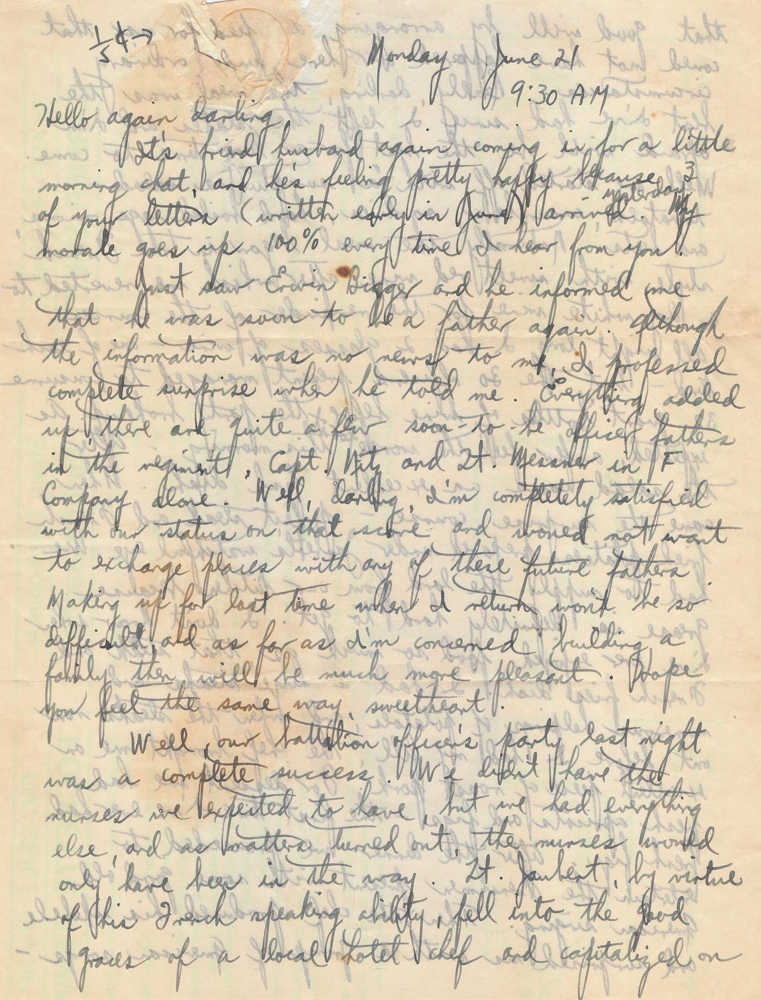 1/5 ¢→
Monday June 21
9:30 AM
Hello again darling,
It's friend husband again coming in for a little
morning chat, and he's feeling pretty happy because 3
of your letters (written early in June) arrived yesterday. My
morale goes up 100% every time I hear from you.
Just saw Erwin Bigger and he informed me
that he was soon to be a father again. Although
the information was no news to me, I professed
complete surprise when he told me. Everything added
up, there are quite a few soon-to-be officer fathers
in the regiment, Capt. Nitz and Lt. Messner in F
Company alone. Well, darling, I'm completely satisfied
with our status on that score and would not want
to exchange places with any of these future fathers
Making up for lost time when I return won't be so
difficult, and as far as I'm concerned building a
family then will be much more pleasant. Hope
you feel the same way, sweetheart.
Well, our battalion officer's party last night
was a complete success. We didn't have the
nurses we expected to have, but we had everything
else, and as matters turned out, the nurses would
only have been in the way. Lt. Jaubert, by virtue
of his French speaking ability, fell into the good
graces of a local hotel chef and capitalized on